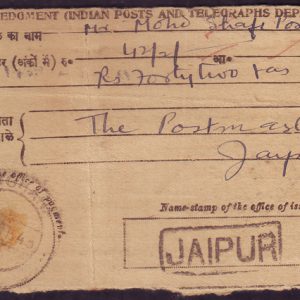 EDGMENT (INDIAN POSTS AND TELEGRAPHS DEP
का नाम Mr. Mohd Shafi
(अंकों में) रु० 42/2/ आ०
Rs Forty two
The Postmas
Jaip
office of payment.
Name-stamp of the office of is
JAIPUR